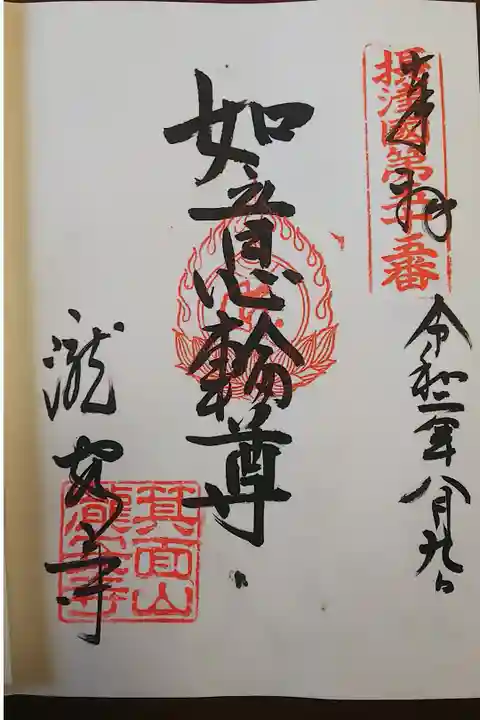 摂津國第五十五番
奉拝
令和二年八月九日
如意輪尊
瀧安寺
箕面山
瀧安寺